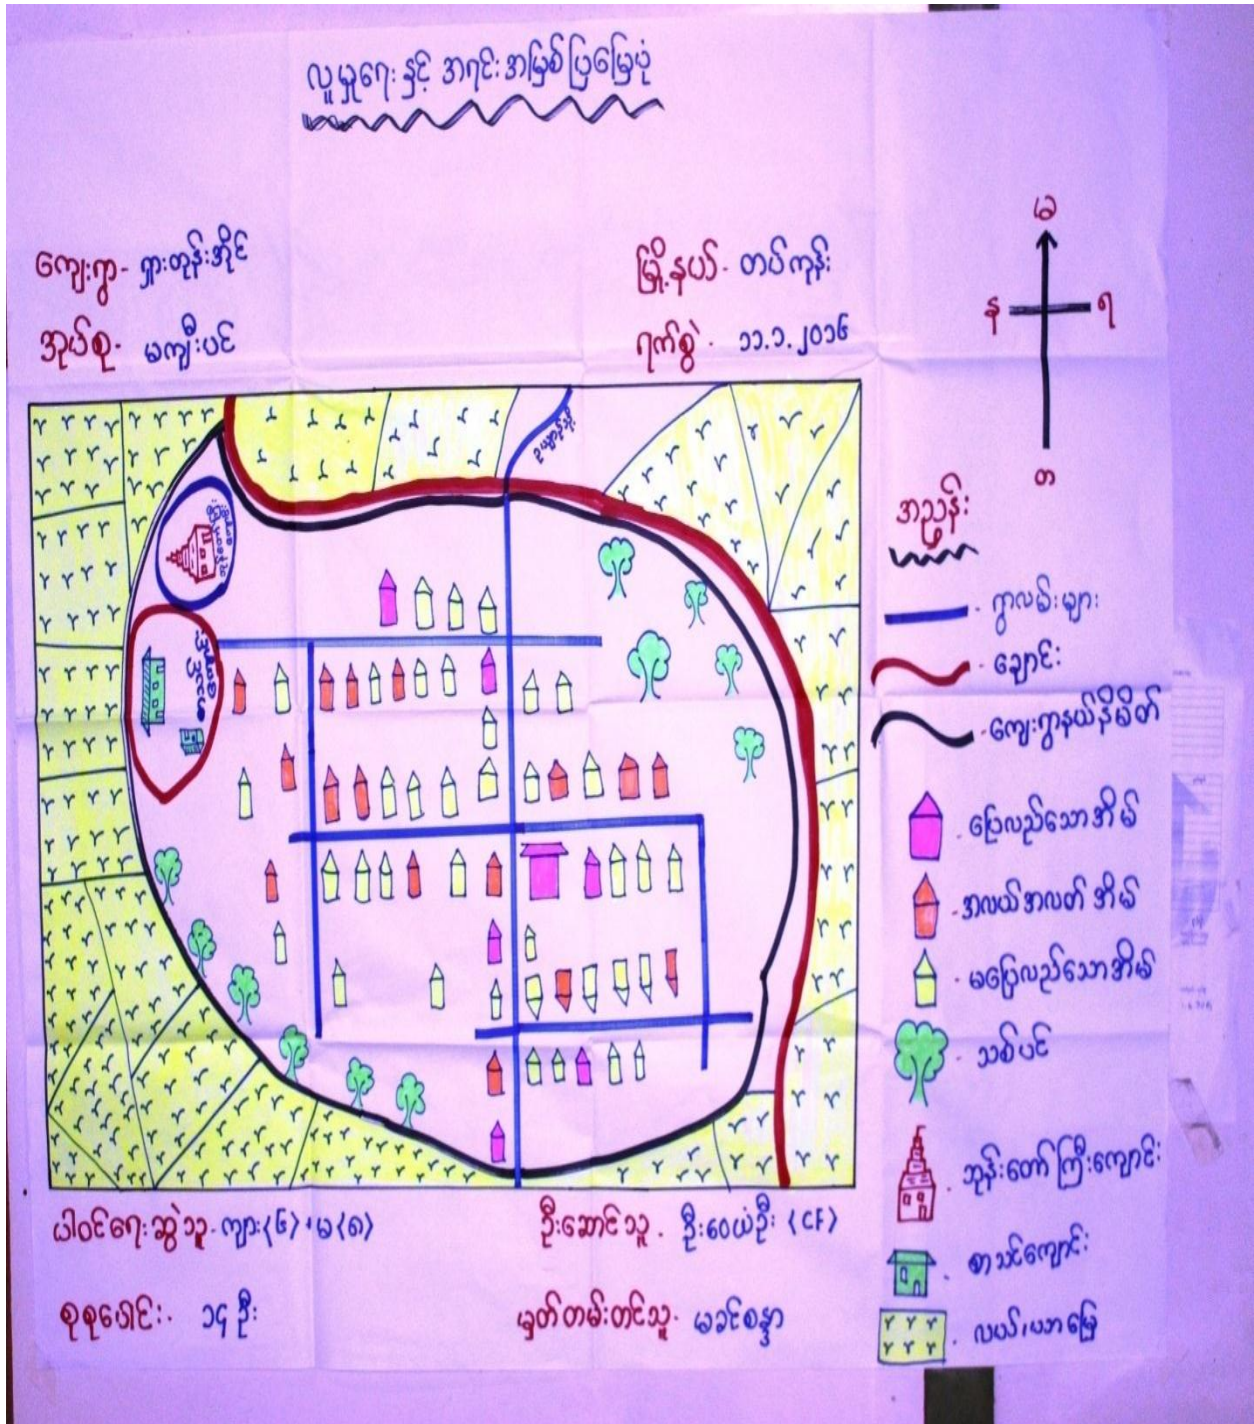 လူမှုရေးနှင့် အရင်းအမြစ်ပြမြေပုံ
ကျေးရွာ- ရှားတုန်းအိုင်
မြို့နယ်- တပ်ကုန်း
အုပ်စု- မကျီးပင်
ရက်စွဲ - ၁၁.၁.၂၀၁၆
မ
န
ရ
တ
အညွှန်း
- ရွာလမ်းများ
- ချောင်း
- ကျေးရွာနယ်နိမိတ်
- ပြေလည်သောအိမ်
- အလယ်အလတ်အိမ်
- မပြေလည်သောအိမ်
- သစ်ပင်
- ဘုန်းတော်ကြီးကျောင်း
- စာသင်ကျောင်း
- လယ်၊ယာမြေ
ပါဝင်ရေးဆွဲသူ- ကျား(၆)၊ မ(၈)
ဦးဆောင်သူ - ဦးဝေယံဦး (CF)
စုစုပေါင်း - ၁၄ ဦး
မှတ်တမ်းတင်သူ- မခင်စန္ဒာ